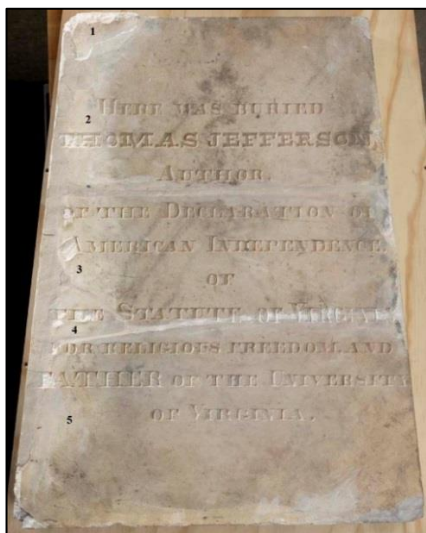 1
HERE WAS BURIED
2
THOMAS JEFFERSON,
AUTHOR.
OF THE DECLARATION OF
AMERICAN INDEPENDENCE
3
OF
THE STATUTE OF VIRGINIA
4
FOR RELIGIOUS FREEDOM, AND
FATHER OF THE UNIVERSITY
OF VIRGINIA.
5